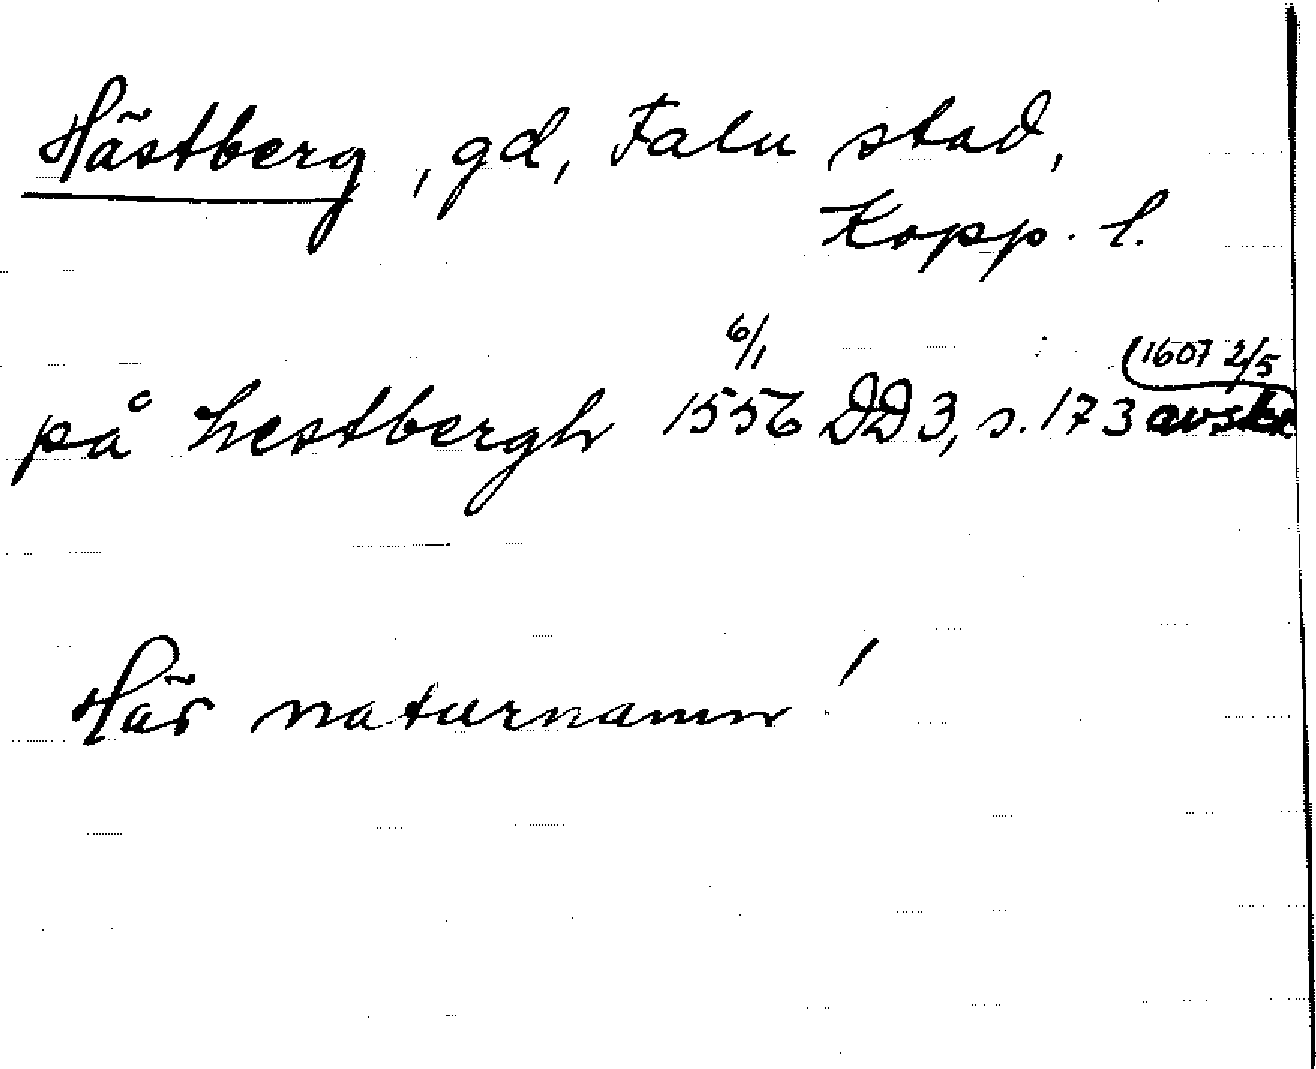 Hästberg, gd, Falu stad,
Kopp. l.
på hestbergh 6/1 1556 DD 3, s. 173 avskr. (1607 2/5
Här naturnamn!